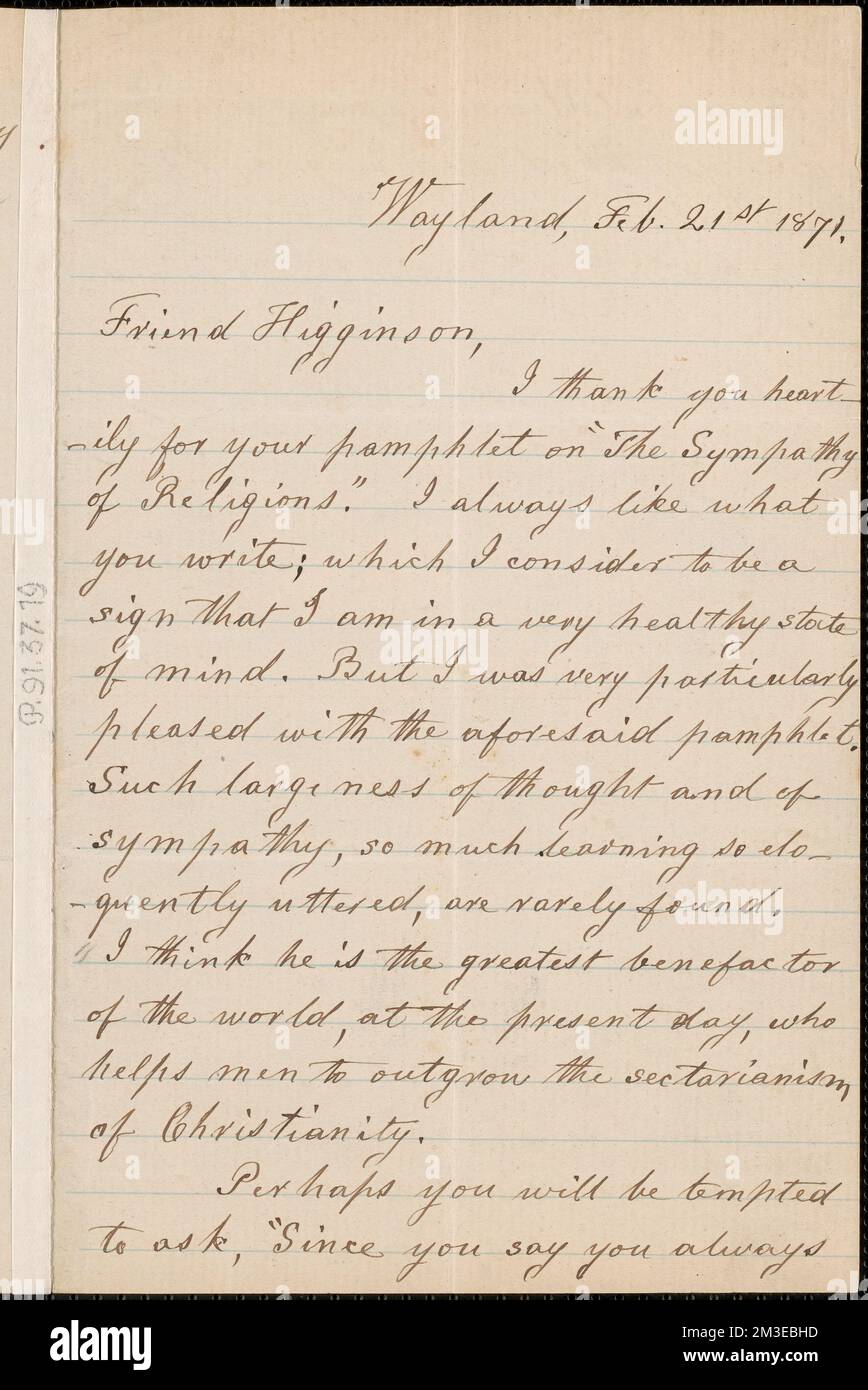 Wayland, Feb. 21st 1871.
Friend Higginson,
I thank you heart-
-ily for your pamphlet on "The Sympathy
of Religions". I always like what
you write; which I consider to be a
sign that I am in a very healthy state
of mind. But I was very particularly
pleased with the aforesaid pamphlet.
Such largeness of thought and of
sympathy, so much learning so elo-
-quently uttered, are rarely found.
"I think he is the greatest benefactor
of the world, at the present day, who
helps men to outgrow the sectarianism
of Christianity.
Perhaps you will be tempted
to ask, "Since you say you always
P.91.37.19
alamy
alamy
alamy
alamy
Image ID: 2M3EBHD
www.alamy.com